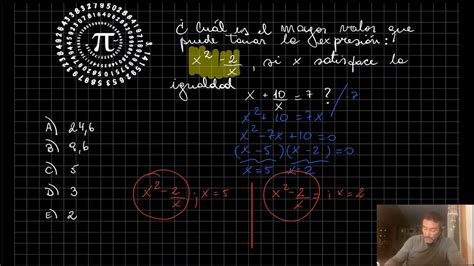 ¿ Cuál es el mayor valor que
puede tomar la expresión:
x² - 2/x , si x satisface la
igualdad
x + 10/x = 7 ?
x² + 10 = 7x
x² - 7x + 10 = 0
(x - 5)(x - 2) = 0
x = 5 x = 2
A) 24,6
B) 9,6
C) 5
D) 3
E) 2
x² - 2/x ; x = 5
x² - 2/x = ; x = 2
π